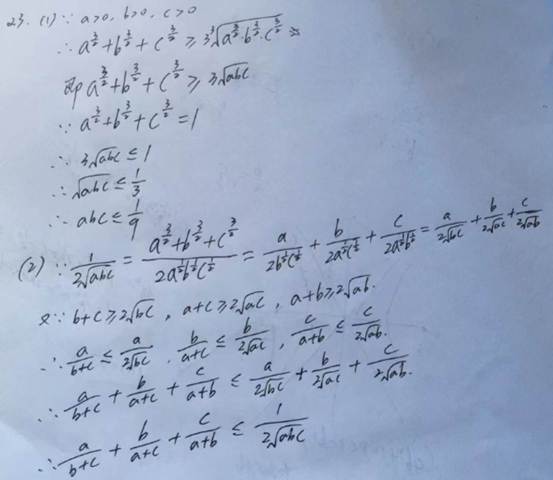 23. (1) ∵ a>0, b>0, c>0
∴ a^{3/2}+b^{3/2}+c^{3/2} ≥ 3∛(a^{3/2}·b^{3/2}·c^{3/2})
即 a^{3/2}+b^{3/2}+c^{3/2} ≥ 3√(abc)
∵ a^{3/2}+b^{3/2}+c^{3/2} = 1
∴ 3√(abc) ≤ 1
∴ √(abc) ≤ 1/3
∴ abc ≤ 1/9
(2) ∵ 1/(2√(abc)) = (a^{3/2}+b^{3/2}+c^{3/2})/(2a^{1/2}b^{1/2}c^{1/2}) = a/(2b^{1/2}c^{1/2}) + b/(2a^{1/2}c^{1/2}) + c/(2a^{1/2}b^{1/2}) = a/(2√(bc)) + b/(2√(ac)) + c/(2√(ab))
又∵ b+c ≥ 2√(bc), a+c ≥ 2√(ac), a+b ≥ 2√(ab).
∴ a/(b+c) ≤ a/(2√(bc)), b/(a+c) ≤ b/(2√(ac)), c/(a+b) ≤ c/(2√(ab)).
∴ a/(b+c) + b/(a+c) + c/(a+b) ≤ a/(2√(bc)) + b/(2√(ac)) + c/(2√(ab)).
∴ a/(b+c) + b/(a+c) + c/(a+b) ≤ 1/(2√(abc))